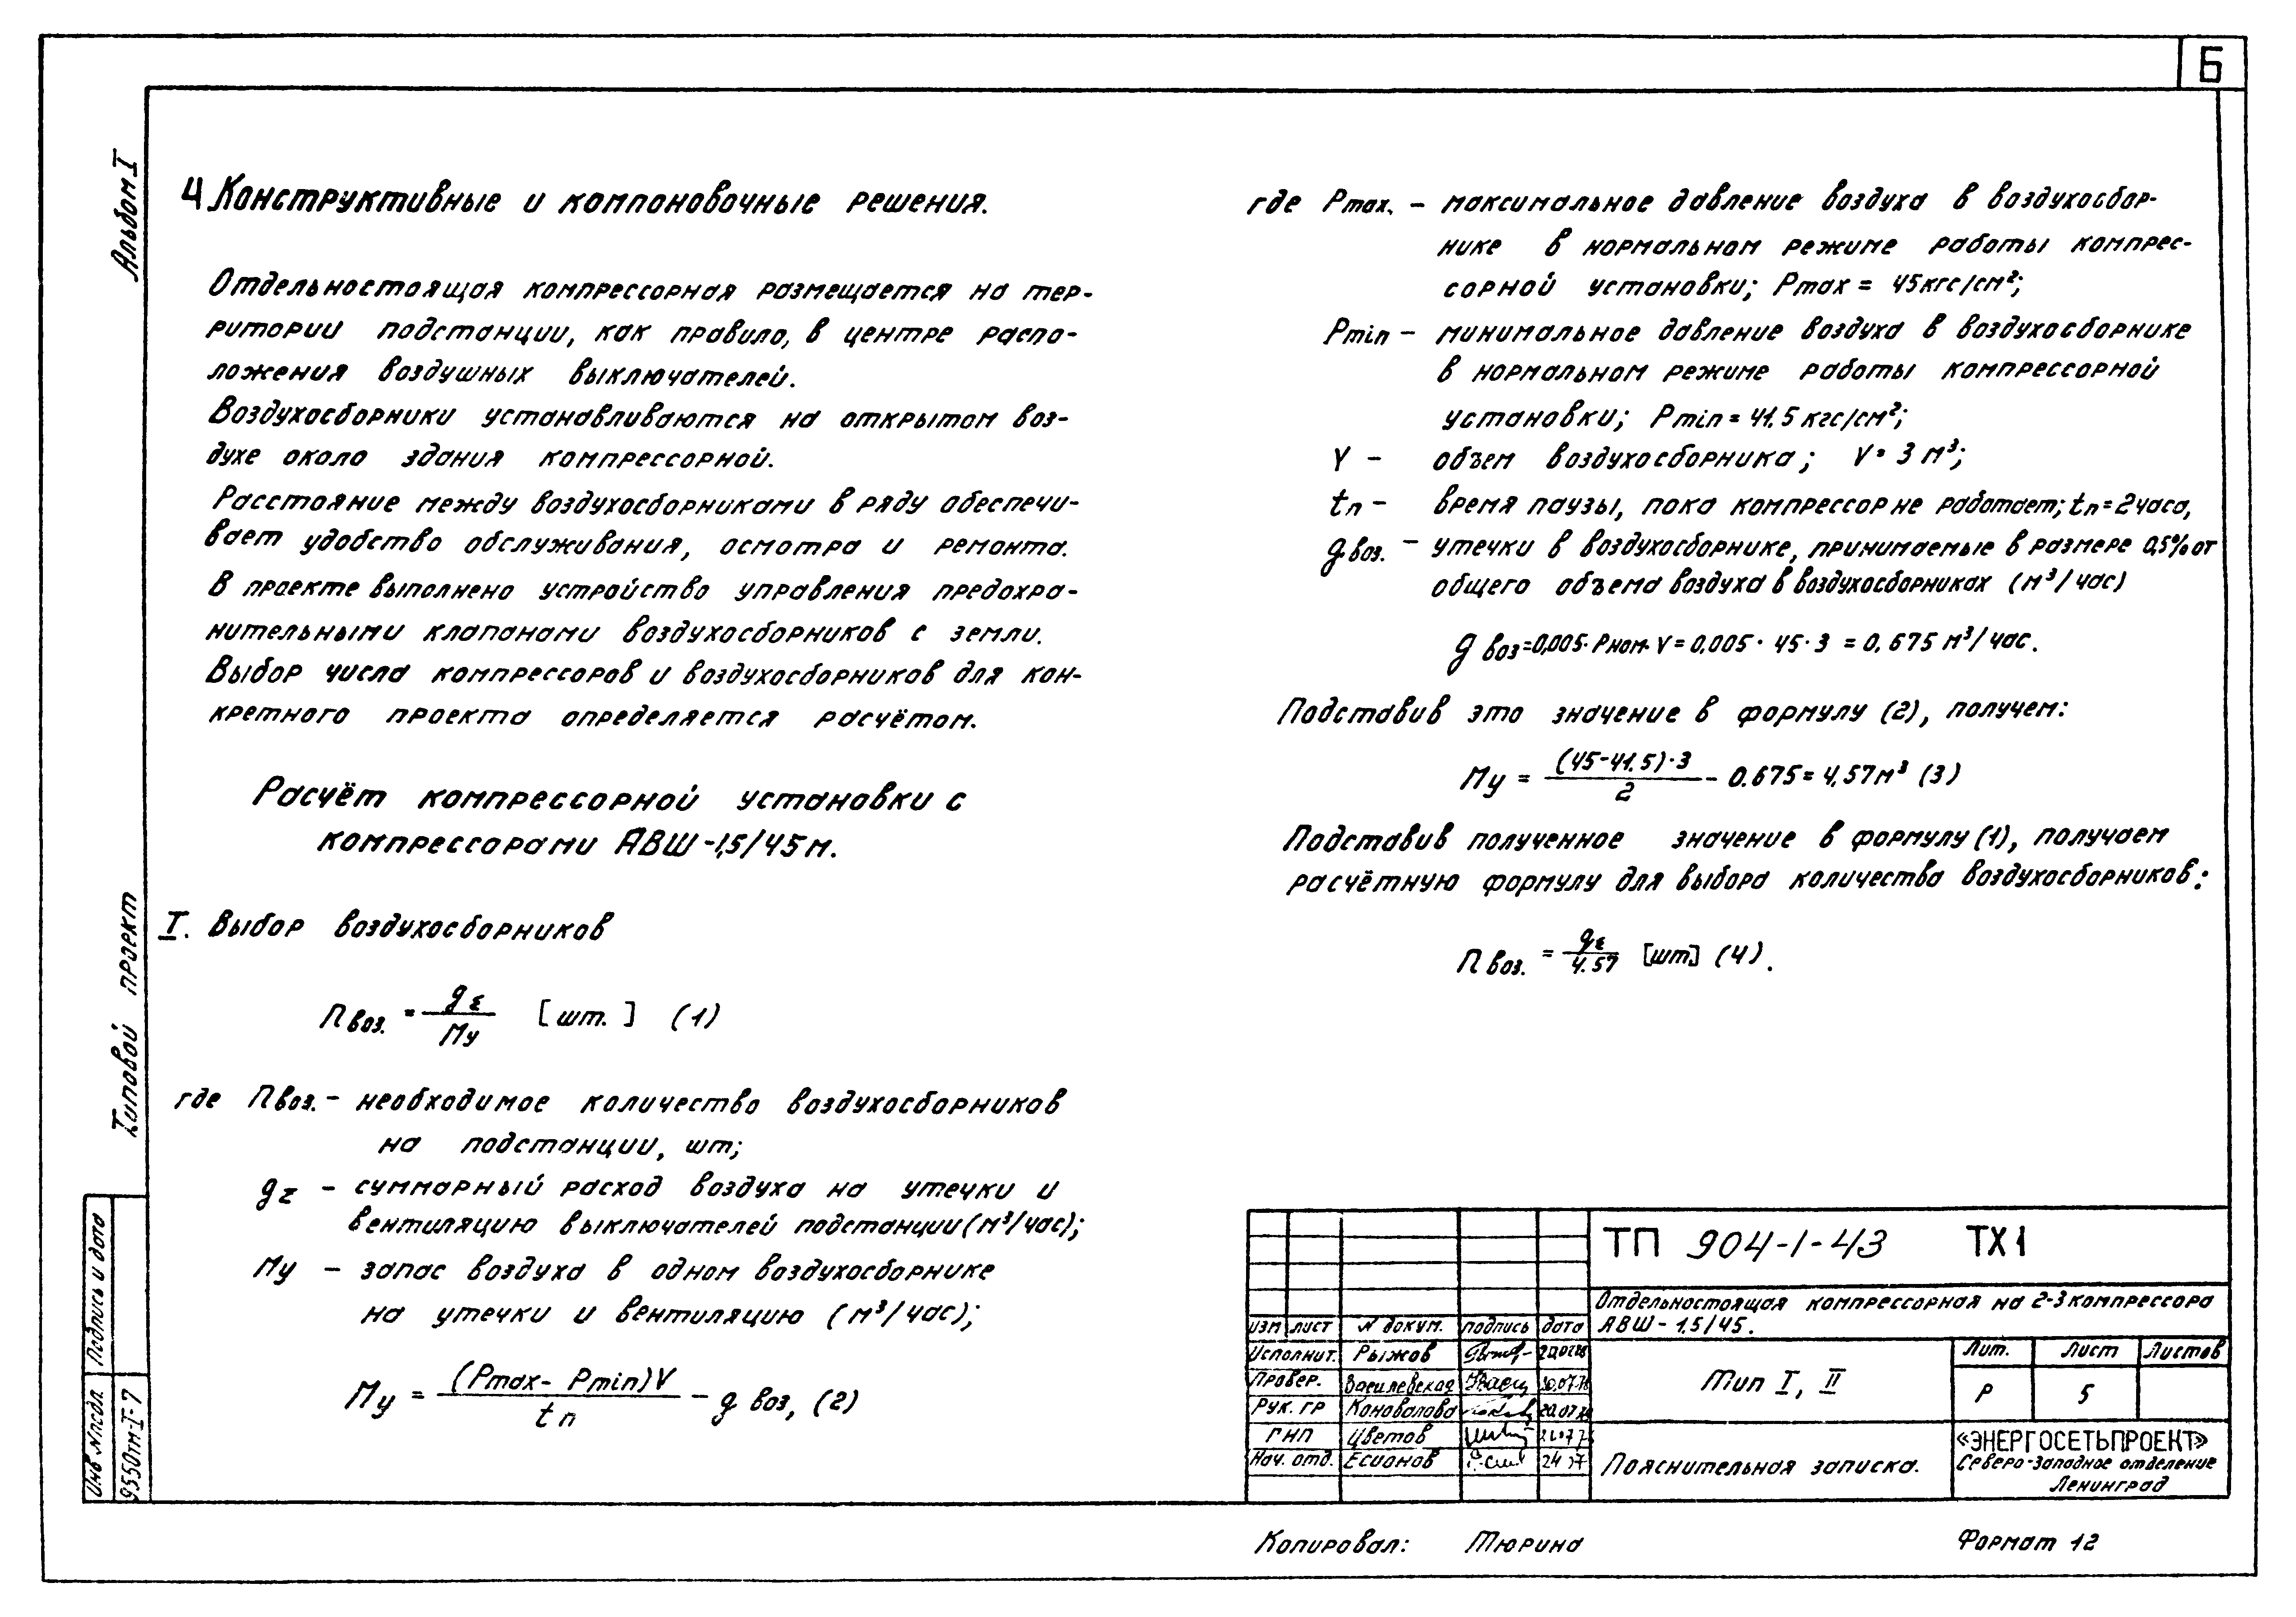 6
Альбом I
Типовой проект
Подпись и дата
Инв №подл.
9550тм-I-7
4 Конструктивные и компоновочные решения.
Отдельностоящая компрессорная размещается на тер-
ритории подстанции, как правило, в центре распо-
ложения воздушных выключателей.
Воздухосборники устанавливаются на открытом воз-
духе около здания компрессорной.
Расстояние между воздухосборниками в ряду обеспечи-
вает удобство обслуживания, осмотра и ремонта.
В проекте выполнено устройство управления предохра-
нительными клапанами воздухосборников с земли.
Выбор числа компрессоров и воздухосборников для кон-
кретного проекта определяется расчётом.
Расчёт компрессорной установки с
компрессорами АВШ-1,5/45м.
I. Выбор воздухосборников
n воз. = gΣ / Му [шт.] (1)
где n воз. - необходимое количество воздухосборников
на подстанции, шт;
gΣ - суммарный расход воздуха на утечки и
вентиляцию выключателей подстанции (м³/час);
Му - запас воздуха в одном воздухосборнике
на утечки и вентиляцию (м³/час);
Му = (Pmax - Pmin)V / tп - g воз, (2)
где Pmax. - максимальное давление воздуха в воздухосбор-
нике в нормальном режиме работы компрес-
сорной установки; Pmax = 45кгс/см²;
Pmin - минимальное давление воздуха в воздухосборнике
в нормальном режиме работы компрессорной
установки; Pmin = 41.5 кгс/см²;
V - объем воздухосборника; V = 3 м³;
tп - время паузы, пока компрессор не работает; tп = 2часа,
g воз. - утечки в воздухосборнике, принимаемые в размере 0,5% от
общего объема воздуха в воздухосборниках (м³/час)
g воз = 0,005· Рном. V = 0.005 · 45 · 3 = 0.675 м³/час.
Подставив это значение в формулу (2), получем:
Му = (45-41.5)·3 / 2 - 0.675 = 4,57м³ (3)
Подставив полученное значение в формулу (1), получаем
расчётную формулу для выбора количества воздухосборников:
n воз. = gΣ / 4.57 [шт] (4).
ТП 904-1-43 ТХ1
Отдельностоящая компрессорная на 2-3 компрессора
АВШ - 1,5/45.
изм лист N докум. подпись дата
Исполнит. Рыжов
Провер. Василевская
Рук. гр Коновалова
ГИП Цветов
Нач. отд. Есионов
Тип I, II
Лит. Лист Листов
Р 5
Пояснительная записка.
«ЭНЕРГОСЕТЬПРОЕКТ»
Северо-западное отделение
Ленинград
Копировал: Тюрина Формат 12